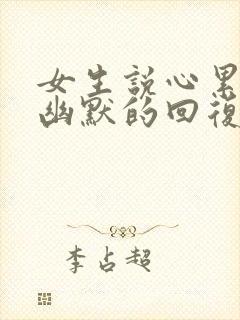 女生説心累
幽默的回復
李占超